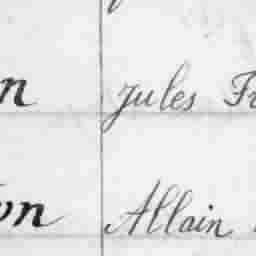 n Jules Fr
on Allain